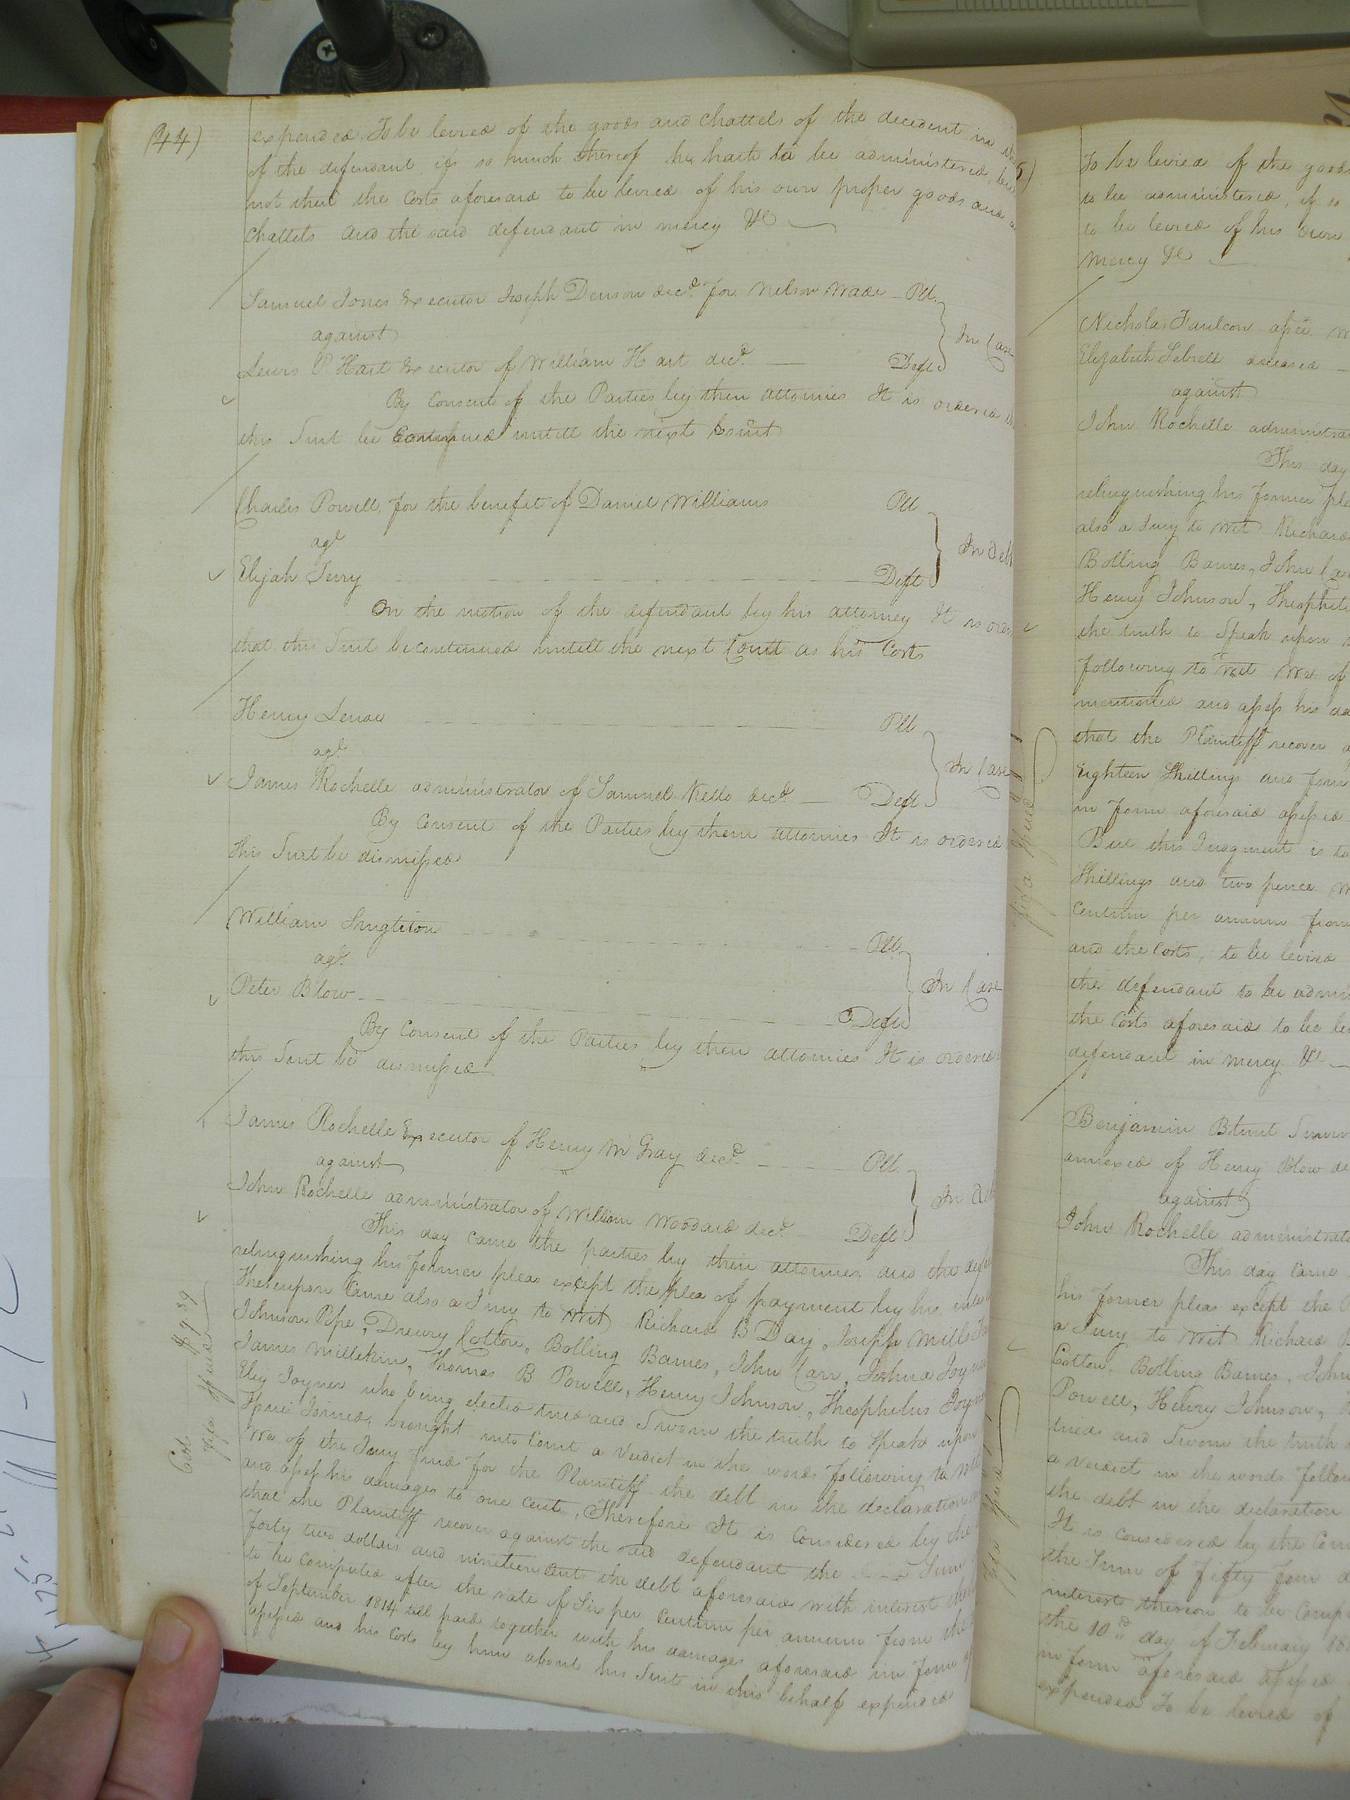 (44)
expended. To be levied of the goods and chattels of the decedent in the
of the defendant if so much thereof he hath to be administered, but if
not then the Costs aforesaid to be levied of his own proper goods and
Chattels and the said defendant in mercy &c
Samuel Jones Executor Joseph Denson decd. for Nelson Wade Plt.
against
In Case
Lewis P Hart Executor of William Hart decd. Deft
By Consent of the Parties by their attornies It is ordered
this Suit be Continued untill the next Court
Charles Powell for the benefit of Daniel Williams Plt
agt
In Debt
Elijah Terry Deft
On the motion of the defendant by his attorney It is
that this Suit be continued untill the next Court as his Costs
Henry Plt
agt.
In Case
James Rochelle administrator of Samuel Kello decd. Deft
By Consent of the Parties by their attornies It is ordered
this Suit be dismissed
William Plt.
agt.
In Case
Peter Blow Deft
By Consent of the Parties by their attornies It is ordered
this Suit be dismissed
James Rochelle Executor of Henry M Gray decd. Plt
against
In
John Rochelle administrator of William Woodard decd. Deft
This day came the parties by their attornies and the
relinquishing his former pleas except the plea of payment by his
Thereupon Came also a Jury to wit Richard B Day, Joseph
Johnson Pope, Drewry Cotton, Bolling Barnes, John Carr, Joshua
James Millikin, Thomas B Powell, Henry Johnson, Theophilus
Eley Joyner who being elected tried and Sworn the truth to Speak upon
Issue Joined, brought into Court a Verdict in the words following to wit
We of the Jury find for the Plaintiff the debt in the declaration
and assess his damages to one Cent, Therefore It is Considered by the
that the Plaintiff recover against the said defendant the Sum
forty two dollars and nineteen Cents the debt aforesaid with interest
to be computed after the rate of Six per Centum per annum from the
of September 1814 till paid together with his damages aforesaid in form
assessed and his Costs by him about his Suit in this behalf expended
fifa issued
To be levied of the goods
to be administered, if so
to be levied of his own
mercy &c
Nicholas Faulcon
Elizabeth deceased
against
John Rochelle administrator
This day
relinquishing his former
also a Jury to wit Richard
Bolling Barnes, John
Henry Johnson, Theophilus
the truth to Speak upon
following to wit We of
mentioned and assess his
that the Plaintiff recover
Eighteen Shillings and
in form aforesaid assessed
But this Judgment is to
Shillings and two pence
Centum per annum from
and the Costs, to be levied
the defendant to be
the Costs aforesaid to be
defendant in mercy &c
fifa issued
Benjamin Blunt
annexed of Henry Blow
against
John Rochelle administrator
This day Came
his former pleas except the
a Jury to wit Richard B
Cotton, Bolling Barnes, John
Powell, Henry Johnson,
tried and Sworn the truth
a Verdict in the words
the debt in the declaration
It is considered by the
the Sum of fifty four
interest thereon to be
the 10th day of February
in form aforesaid assessed
expended To be levied of